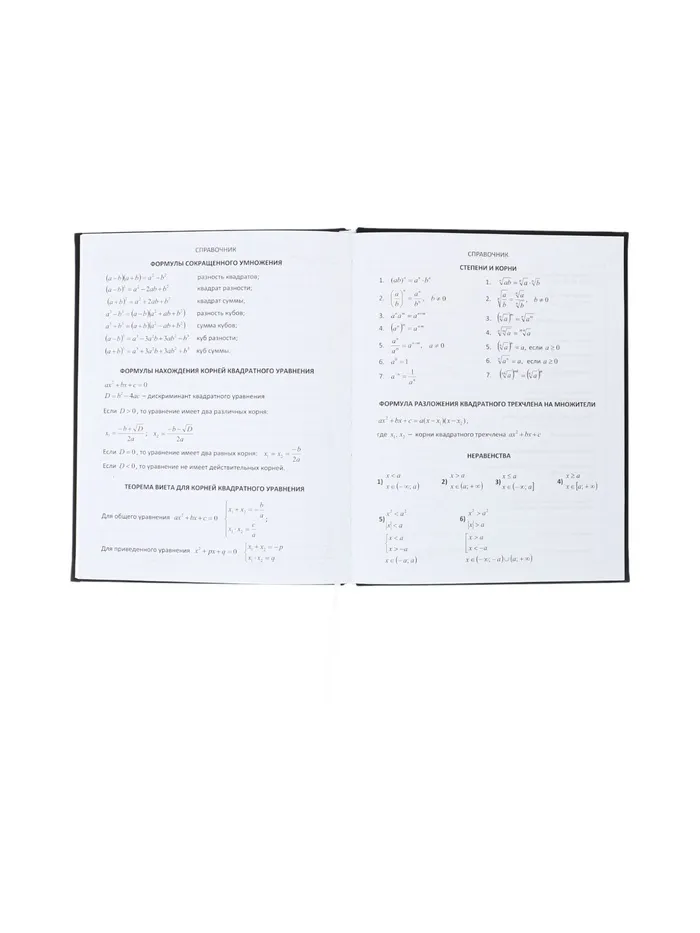 СПРАВОЧНИК
ФОРМУЛЫ СОКРАЩЕННОГО УМНОЖЕНИЯ
(a−b)(a+b)=a²−b² разность квадратов;
(a−b)²=a²−2ab+b² квадрат разности;
(a+b)²=a²+2ab+b² квадрат суммы,
a³−b³=(a−b)(a²+ab+b²) разность кубов;
a³+b³=(a+b)(a²−ab+b²) сумма кубов;
(a−b)³=a³−3a²b+3ab²−b³ куб разности;
(a+b)³=a³+3a²b+3ab²+b³ куб суммы.
ФОРМУЛЫ НАХОЖДЕНИЯ КОРНЕЙ КВАДРАТНОГО УРАВНЕНИЯ
ax²+bx+c=0
D=b²−4ac − дискриминант квадратного уравнения
Если D>0, то уравнение имеет два различных корня:
x₁=(−b+√D)/2a; x₂=(−b−√D)/2a
Если D=0, то уравнение имеет два равных корня: x₁=x₂=−b/2a
Если D<0, то уравнение не имеет действительных корней.
ТЕОРЕМА ВИЕТА ДЛЯ КОРНЕЙ КВАДРАТНОГО УРАВНЕНИЯ
Для общего уравнения ax²+bx+c=0 {x₁+x₂=−b/a; x₁·x₂=c/a
Для приведенного уравнения x²+px+q=0 {x₁+x₂=−p x₁·x₂=q
СПРАВОЧНИК
СТЕПЕНИ И КОРНИ
1. (ab)ⁿ=aⁿ·bⁿ
2. (a/b)ⁿ=aⁿ/bⁿ, b≠0
3. aⁿaᵐ=aⁿ⁺ᵐ
4. (aⁿ)ᵐ=aⁿ·ᵐ
5. aⁿ/aᵐ=aⁿ⁻ᵐ, a≠0
6. a⁰=1
7. a⁻ⁿ=1/aⁿ
1. ⁿ√ab=ⁿ√a·ⁿ√b
2. ⁿ√(a/b)=ⁿ√a/ⁿ√b, b≠0
3. (ⁿ√a)ᵐ=ⁿ√aᵐ
4. ⁿ√ᵐ√a=ⁿᵐ√a
5. (ⁿ√a)ⁿ=a, если a≥0
6. ⁿ√aⁿ=a, если a≥0
7
ФОРМУЛА РАЗЛОЖЕНИЯ КВАДРАТНОГО ТРЕХЧЛЕНА НА МНОЖИТЕЛИ
ax²+bx+c=a(x−x₁)(x−x₂),
где x₁,x₂ − корни квадратного трехчлена ax²+bx+c
НЕРАВЕНСТВА
1) x<a x∈(−∞; a)
2) x>a x∈(a;+∞)
3) x≤a x∈(−∞; a]
4) x≥a x∈[a;+∞)
5) x²<a² |x|<a {x<a x>−a x∈(−a; a)
6) x²>a² |x|>a [x>a x<−a x∈(−∞;−a)∪(a;+∞)